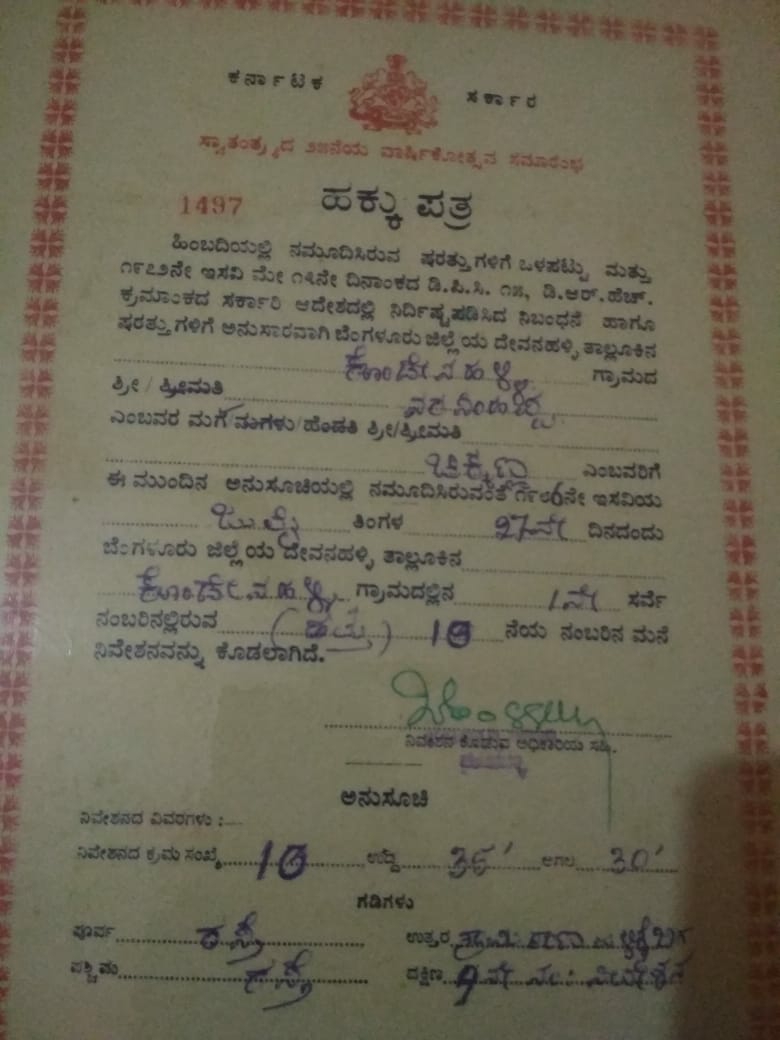 ಕರ್ನಾಟಕ ಸರ್ಕಾರ
ಸ್ವಾತಂತ್ರ್ಯದ ೨೫ನೆಯ ವಾರ್ಷಿಕೋತ್ಸವ ಸಮಾರಂಭ
1497 ಹಕ್ಕು ಪತ್ರ
ಹಿಂಬದಿಯಲ್ಲಿ ನಮೂದಿಸಿರುವ ಷರತ್ತುಗಳಿಗೆ ಒಳಪಟ್ಟು ಮತ್ತು
೧೯೭೨ನೇ ಇಸವಿ ಮೇ ೧೩ನೇ ದಿನಾಂಕದ ಡಿ.ಪಿ.ಸಿ. ೧೫, ಡಿ.ಆರ್.ಹೆಚ್.
ಕ್ರಮಾಂಕದ ಸರ್ಕಾರಿ ಆದೇಶದಲ್ಲಿ ನಿರ್ದಿಷ್ಟಪಡಿಸಿದ ನಿಬಂಧನೆ ಹಾಗೂ
ಷರತ್ತುಗಳಿಗೆ ಅನುಸಾರವಾಗಿ ಬೆಂಗಳೂರು ಜಿಲ್ಲೆಯ ದೇವನಹಳ್ಳಿ ತಾಲ್ಲೂಕಿನ
ಗ್ರಾಮದ
ಶ್ರೀ/ಶ್ರೀಮತಿ
ಎಂಬವರ ಮಗ/ಮಗಳು/ಹೆಂಡತಿ ಶ್ರೀ/ಶ್ರೀಮತಿ
ಚಿಕ್ಕಣ್ಣ ಎಂಬವರಿಗೆ
ಈ ಮುಂದಿನ ಅನುಸೂಚಿಯಲ್ಲಿ ನಮೂದಿಸಿರುವಂತೆ ೧೯೮6ನೇ ಇಸವಿಯ
ಜುಲೈ ತಿಂಗಳ 27ನೇ ದಿನದಂದು
ಬೆಂಗಳೂರು ಜಿಲ್ಲೆಯ ದೇವನಹಳ್ಳಿ ತಾಲ್ಲೂಕಿನ
ಗ್ರಾಮದಲ್ಲಿನ 1ನೇ ಸರ್ವೆ
ನಂಬರಿನಲ್ಲಿರುವ (ಹತ್ತು) 10 ನೆಯ ನಂಬರಿನ ಮನೆ
ನಿವೇಶನವನ್ನು ಕೊಡಲಾಗಿದೆ.
ನಿವೇಶನ ಕೊಡುವ ಅಧಿಕಾರಿಯ ಸಹಿ.
ಅನುಸೂಚಿ
ನಿವೇಶನದ ವಿವರಗಳು :—
ನಿವೇಶನದ ಕ್ರಮ ಸಂಖ್ಯೆ 10 ಉದ್ದ 36' ಅಗಲ 30'
ಗಡಿಗಳು
ಪೂರ್ವ ರಸ್ತೆ ಉತ್ತರ
ಪಶ್ಚಿಮ ರಸ್ತೆ ದಕ್ಷಿಣ 9ನೇ ನಂ: ನಿವೇಶನ